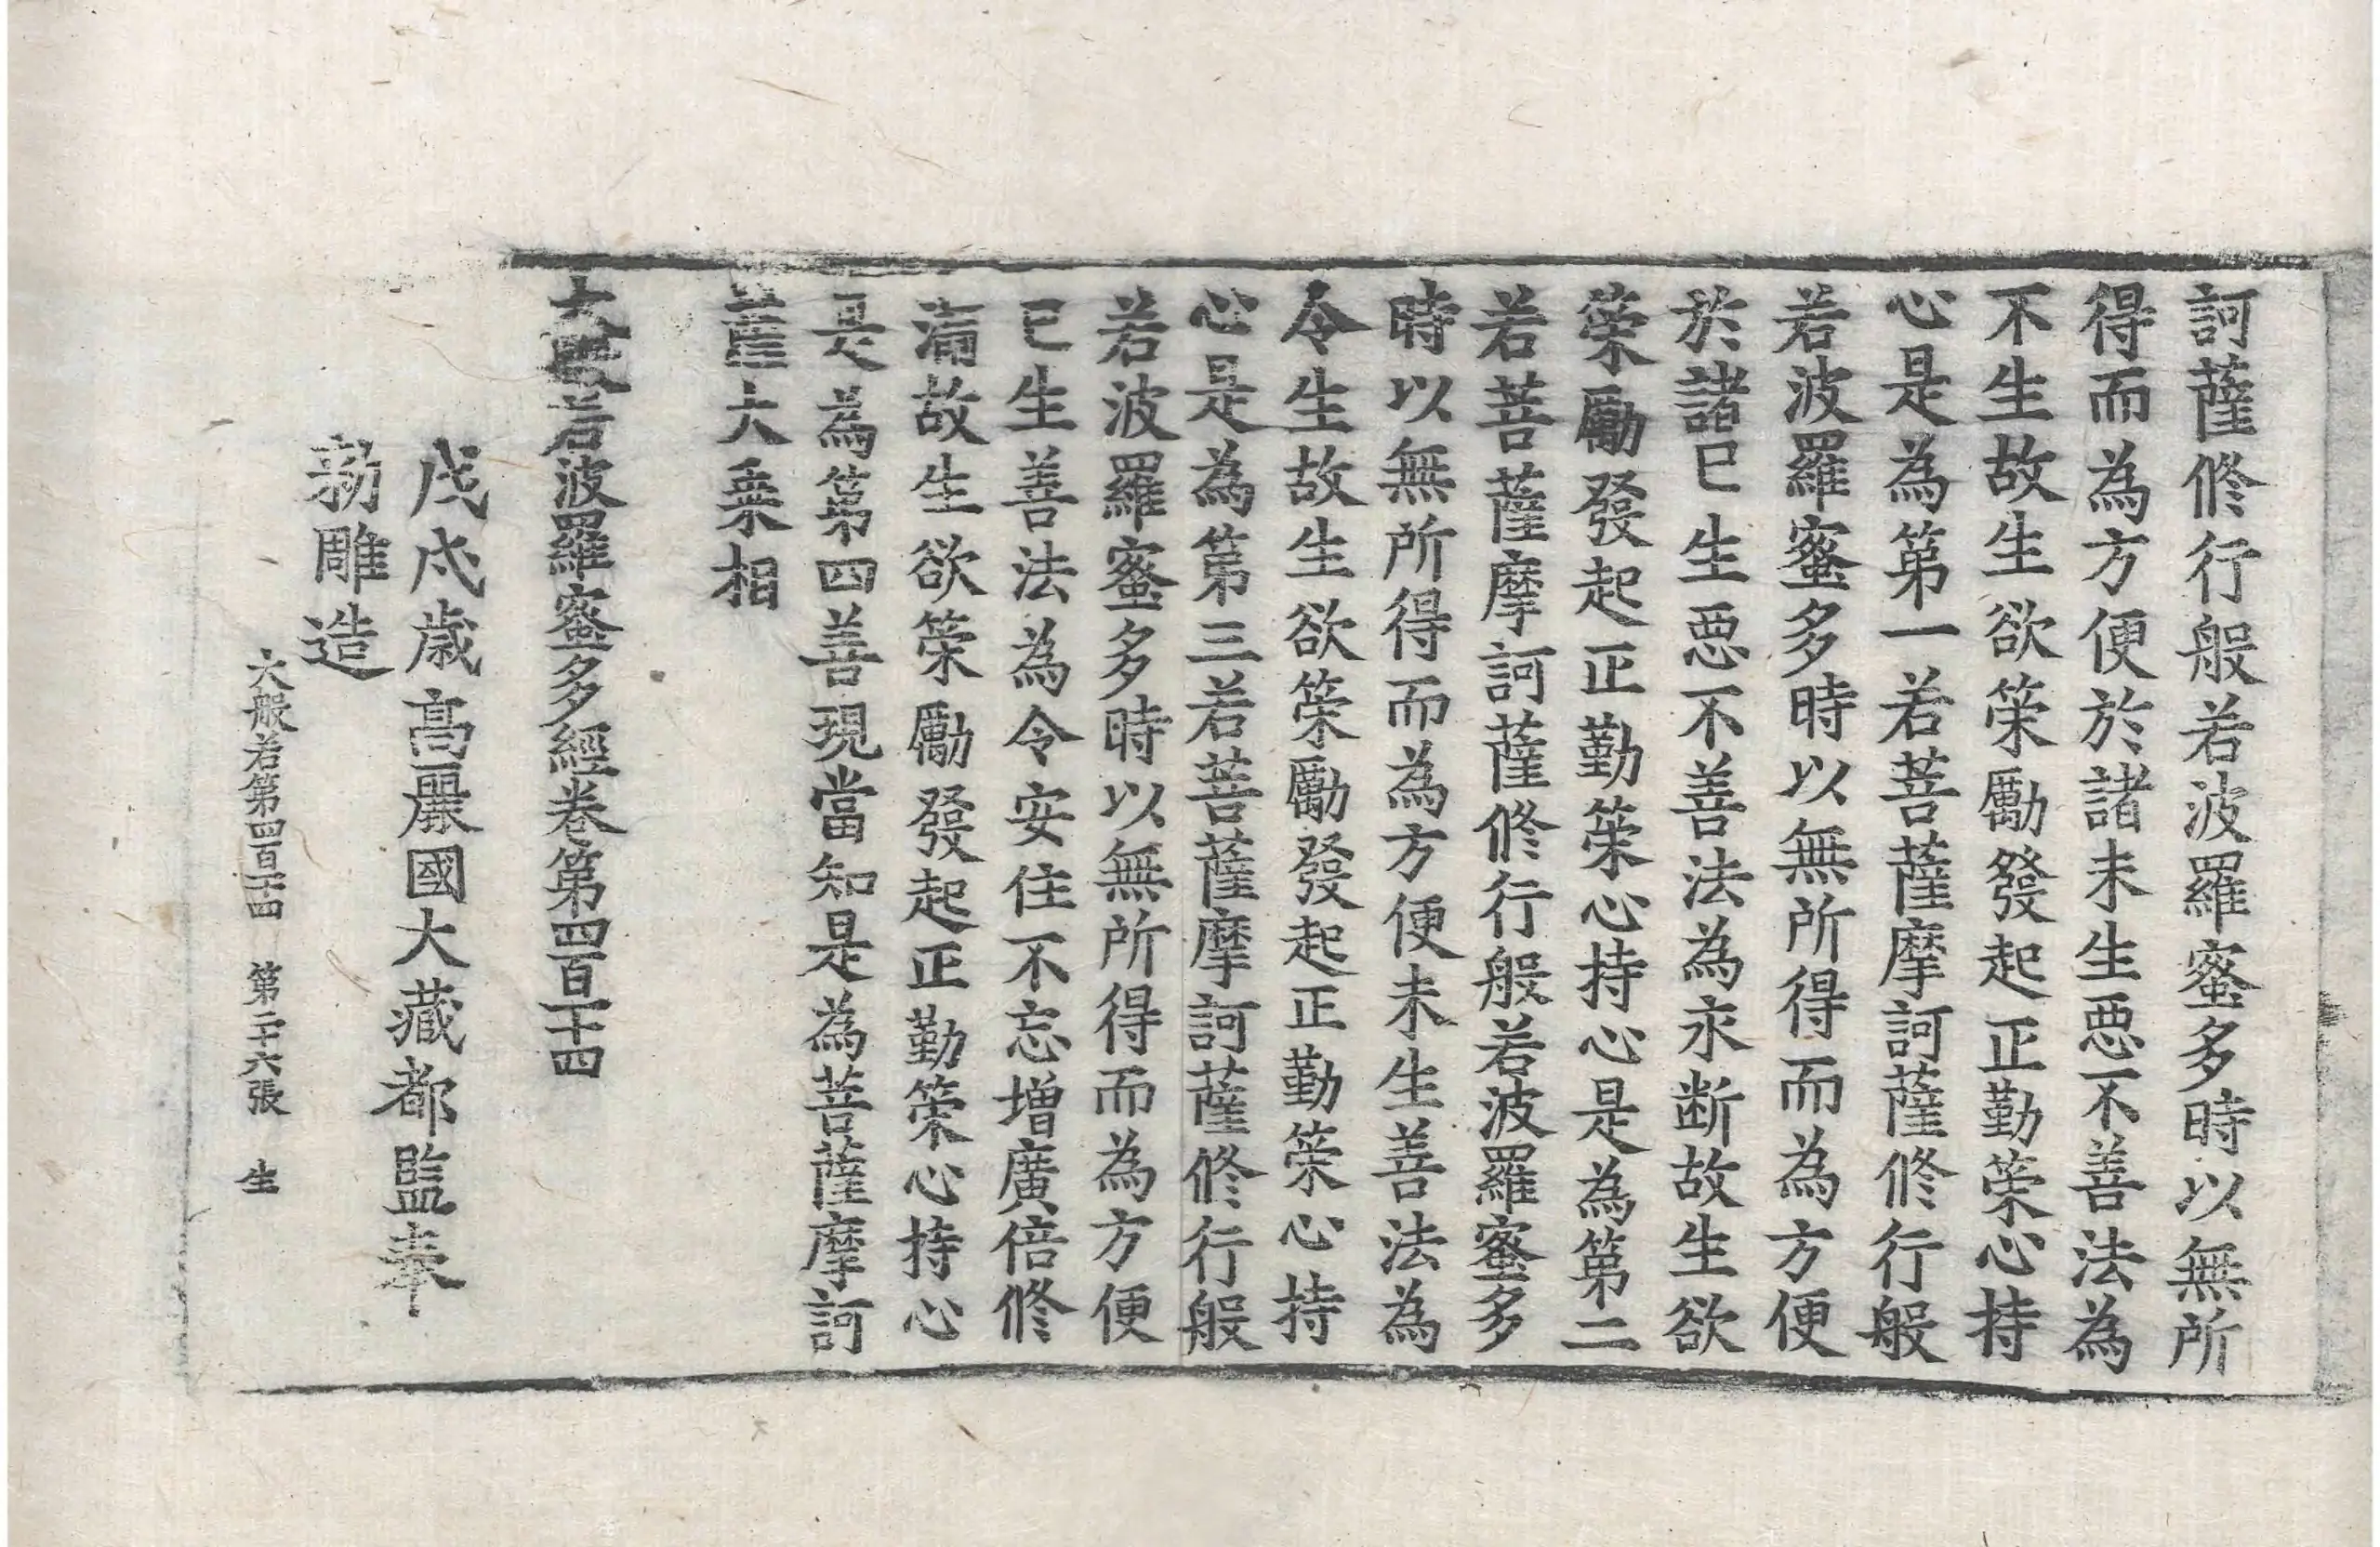 訶薩修行般若波羅蜜多時以無所
得而為方便於諸未生惡不善法為
不生故生欲策勵發起正勤策心持
心是為第一若菩薩摩訶薩修行般
若波羅蜜多時以無所得而為方便
於諸已生惡不善法為永断故生欲
策勵發起正勤策心持心是為第二
若菩薩摩訶薩修行般若波羅蜜多
時以無所得而為方便未生善法為
令生故生欲策勵發起正勤策心持
心是為第三若菩薩摩訶薩修行般
若波羅蜜多時以無所得而為方便
已生善法為令安住不忘增廣倍修
滿故生欲策勵發起正勤策心持心
是為第四善現當知是為菩薩摩訶
薩大乗相
大般若波羅蜜多經卷第四百一十四
戊戌歳高麗國大藏都監奉
勑雕造
大般若第四百一十四 第二十六張 生